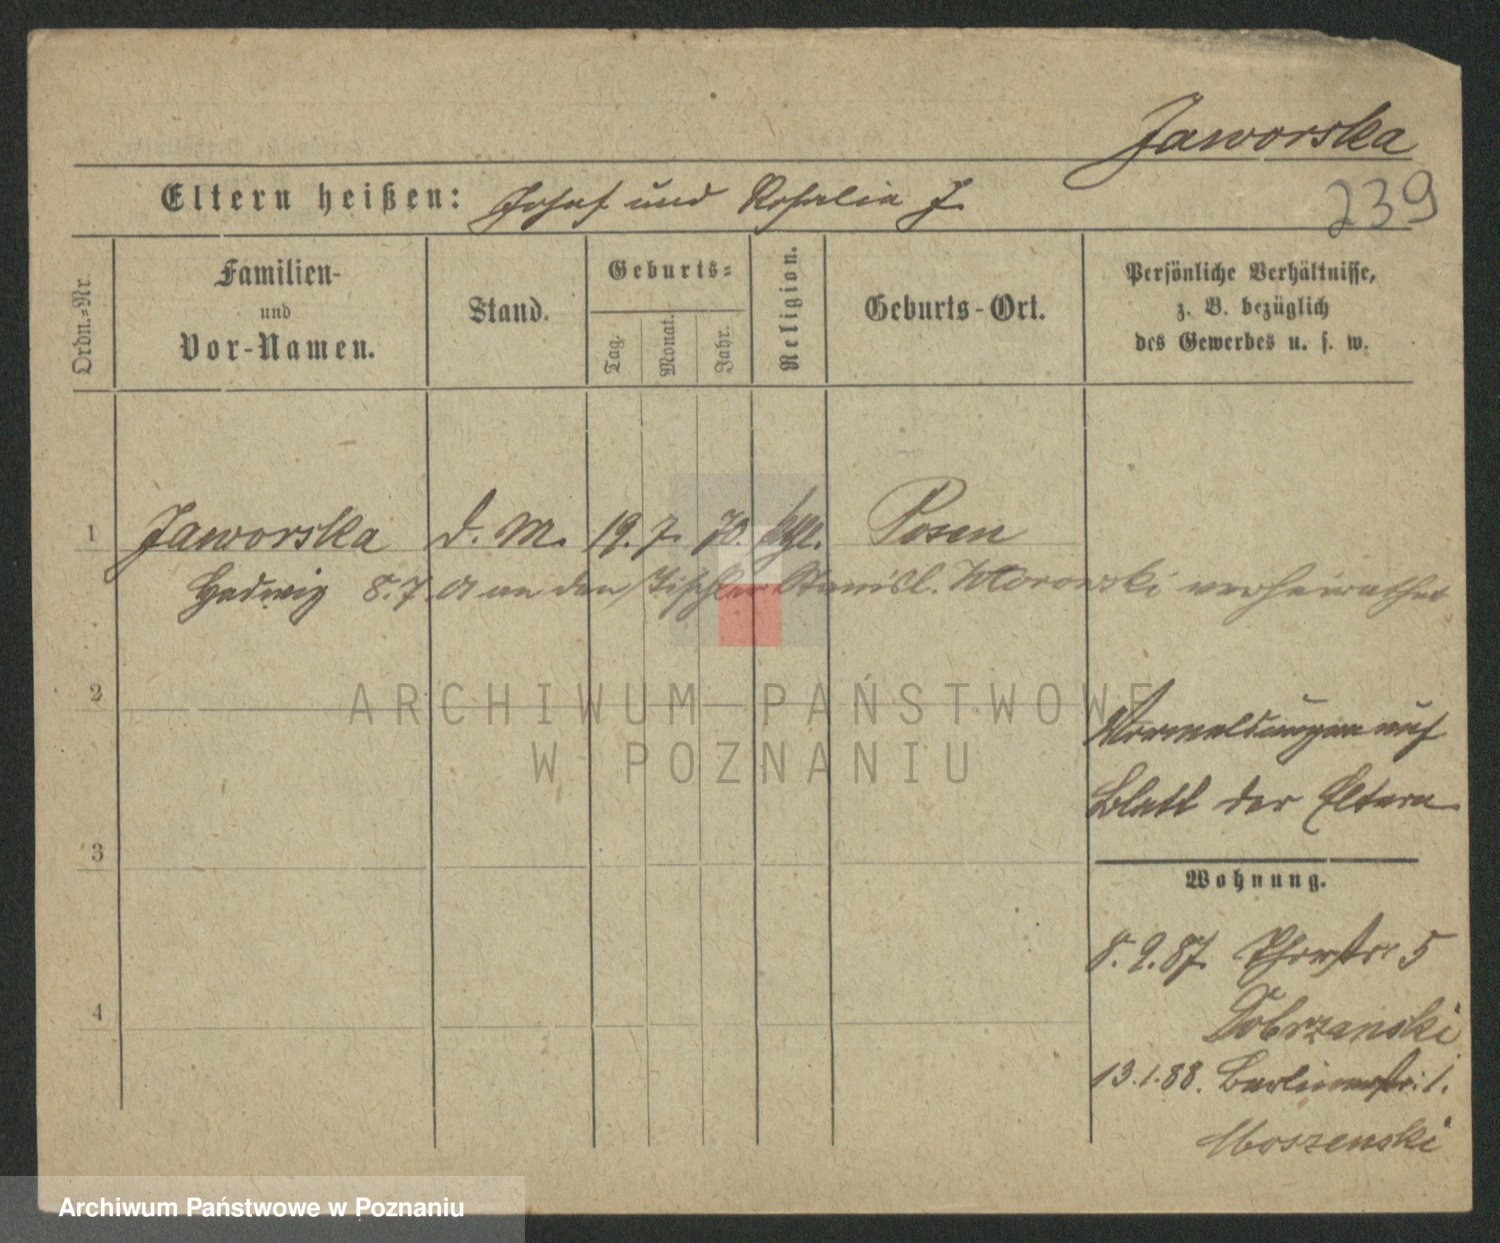 Jaworska
239
Eltern heißen: Josef und Rosalie J.
Ordn.=Nr
Familien-
und
Vor-Namen.
Stand.
Geburts=
Tag.
Monat.
Jahr.
Religion.
Geburts-Ort.
Persönliche Verhältnisse,
z. B. bezüglich
des Gewerbes u. s. w.
1 Jaworska d. M. 19. 7. 70. kth. Posen
Hedwig 8.7. an den Tischler Stanisl. verheirathet
2
ARCHIWUM PAŃSTWOWE
W POZNANIU
Vormeldungen auf
Blatt der Eltern
3
Wohnung.
8.9.87. 5
4
Dobrzanski
13.1.88. Berlinerstr. 1.
Moszenski
Archiwum Państwowe w Poznaniu